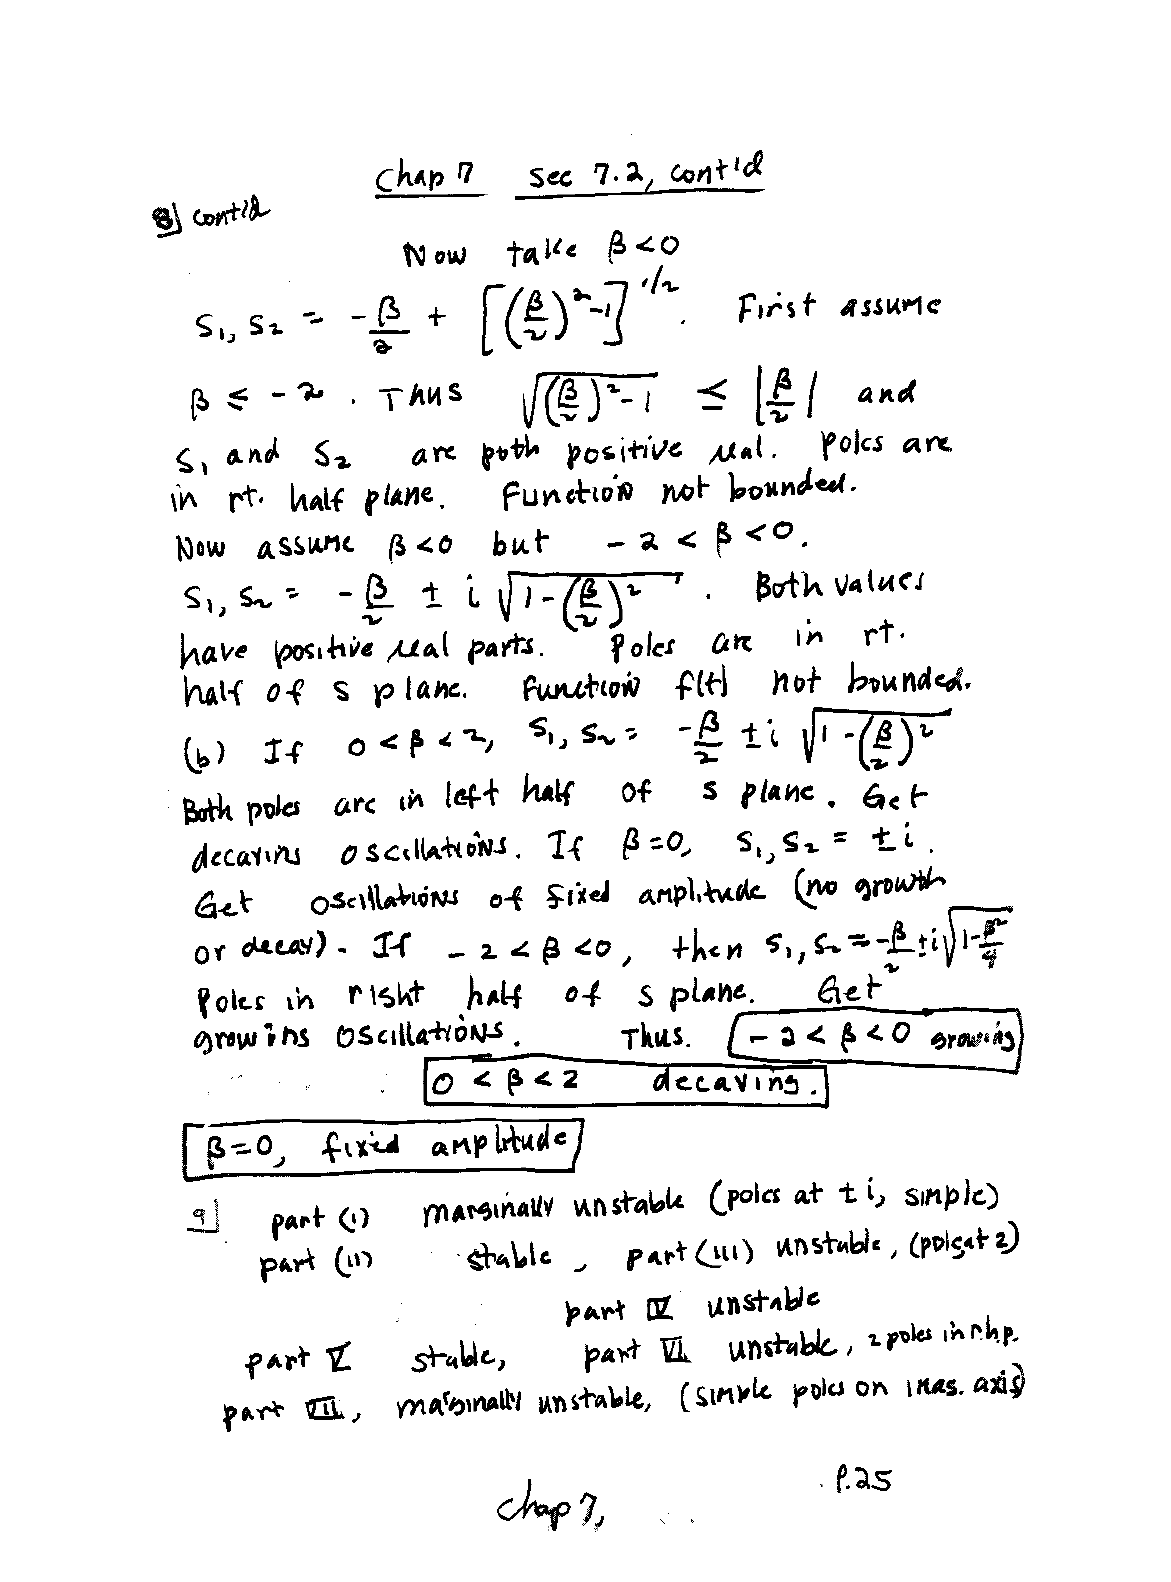 Chap 7 Sec 7.2, cont'd
8] cont'd
Now take β<0
S₁, S₂ = -β/2 + [(β/2)²-1]^1/2. First assume
β ≤ -2. Thus √((β/2)²-1) ≤ |β/2| and
S₁ and S₂ are both positive real. Poles are
in rt. half plane. Function not bounded.
Now assume β<0 but -2 < β <0.
S₁, S₂ = -β/2 ± i √(1-(β/2)²). Both values
have positive real parts. Poles are in rt.
half of s plane. Function f(t) not bounded.
(b) If 0<β<2, S₁, S₂ = -β/2 ± i √(1-(β/2)²)
Both poles are in left half of s plane. Get
decaying oscillations. If β=0, S₁, S₂ = ± i.
Get oscillations of fixed amplitude (no growth
or decay). If -2<β<0, then S₁, S₂ = -β/2 ± i√(1-β²/4)
Poles in right half of s plane. Get
growing oscillations. Thus. -2<β<0 growing
0 < β < 2 decaying.
β=0, fixed amplitude
9] part (i) marginally unstable (poles at ± i, simple)
part (ii) stable, part (iii) unstable, (poles at 2)
part IV unstable
part V stable, part VI unstable, 2 poles in r.h.p.
part VII, marginally unstable, (simple poles on imag. axis)
P.25
Chap 7,